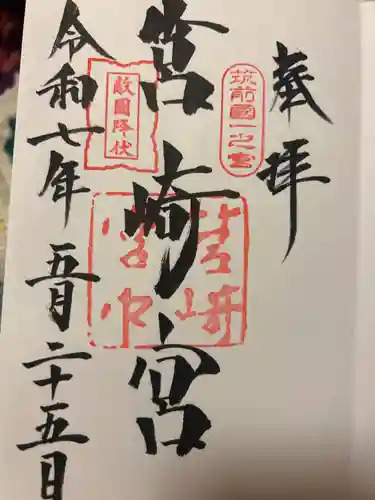 奉拝
筑前國一之宮
筥崎宮
敵國降伏
令和七年五月二十五日